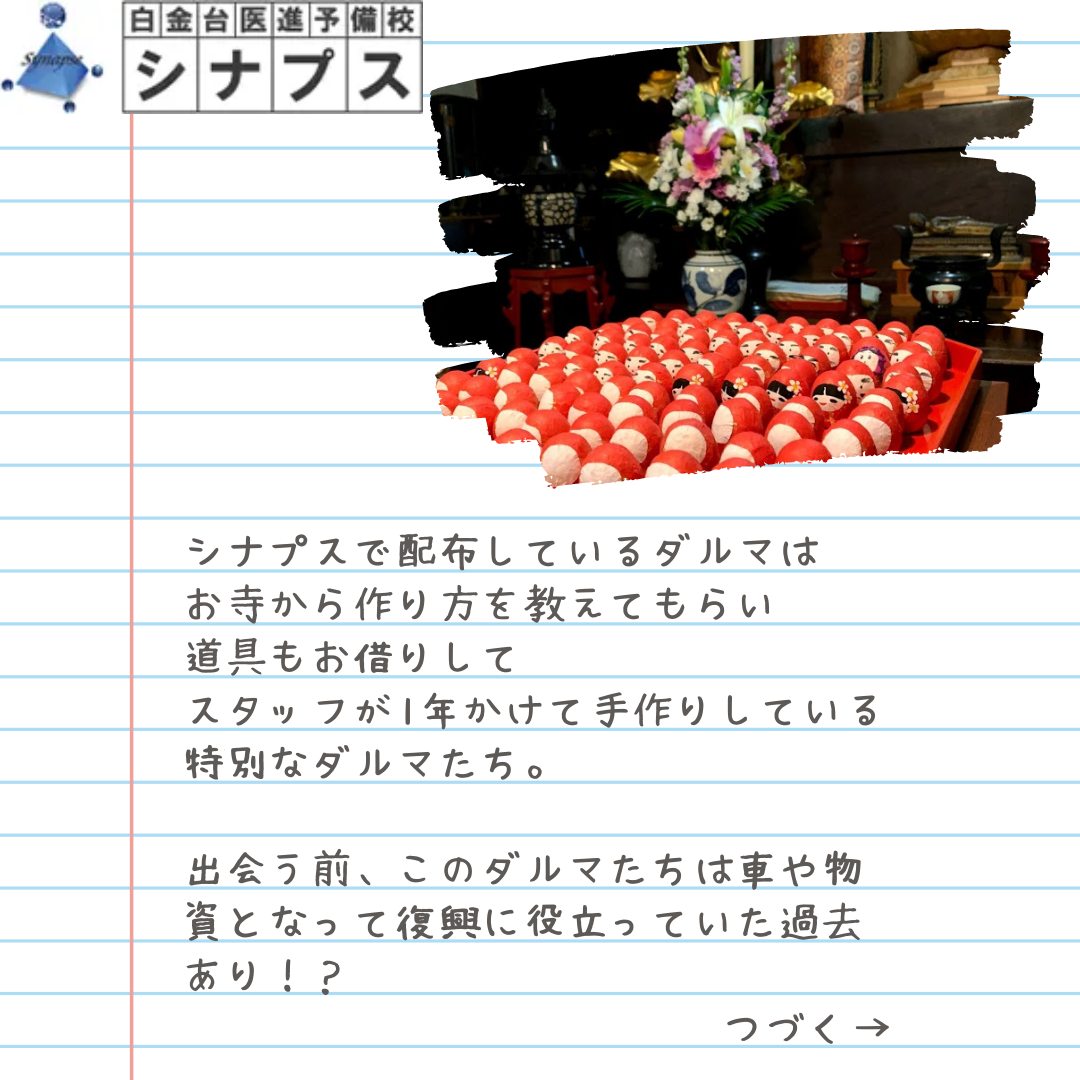 Synapse
白金台医進予備校
シナプス
シナプスで配布しているダルマは
お寺から作り方を教えてもらい
道具もお借りして
スタッフが1年かけて手作りしている
特別なダルマたち。
出会う前、このダルマたちは車や物
資となって復興に役立っていた過去
あり！？
つづく→